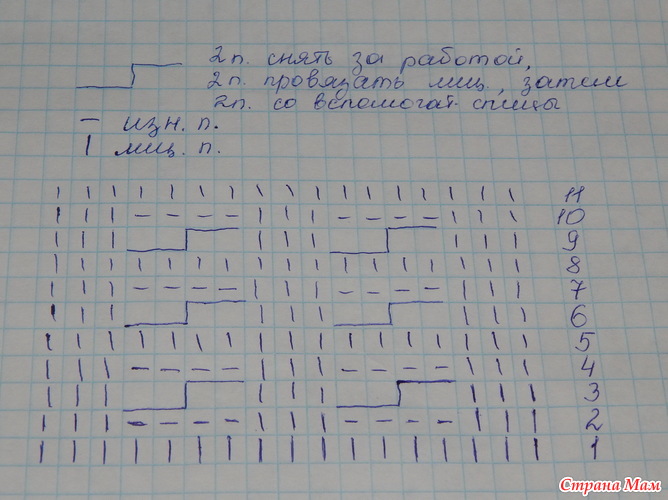 2п. снять за работой,
2п. провязать лиц., затем
2п. со вспомогат. спицы
— изн. п.
| лиц. п.
| | | | | | | | | | | | | | | | | 11
| | | — — — — | | | — — — — | | | 10
| | | | | | | | | 9
| | | | | | | | | | | | | | | | | 8
| | | — — — — | | | — — — — | | | 7
| | | | | | | | | 6
| | | | | | | | | | | | | | | | | 5
| | | — — — — | | | — — — — | | | 4
| | | | | | | | | 3
| | | — — — — | | | — — — — | | | 2
| | | | | | | | | | | | | | | | | 1
Страна Мам